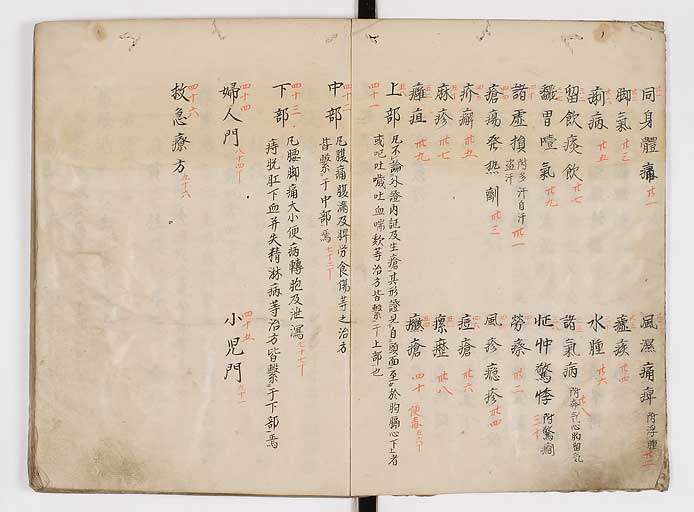 同身體痛 廿一
風濕痛痺 附浮腫 廿二
脚氣 廿三
瘧疾 廿四
痢病 廿五
水腫 廿六
留飲痰飲 廿七
諸氣病 廿八
齟胃噎氣 廿九
怔忡驚悸 附驚癇 三十
諸虛損 附多汗自汗盜汗 卅一
勞瘵 卅二
瘡瘍発熱劑 卅三
風疹癮疹 卅四
疥癬 卅五
痘瘡 卅六
麻疹 卅七
瘰癧 卅八
癰疽 卅九
癥瘡 四十 便毒
四十一
上部 凡不論外證內証及生瘡其形證見自頭面至於胸膈心下上者
或吧吐噦吐血喘欬等治方皆繫于上部也
四十二
中部 凡腹痛腹滿及脾労食傷等之治方
皆繫于中部焉 七十二丁
四十三
下部 凡腰脚痛大小便病轉胞及泄瀉 七十七丁
痔脱肛下血并失精淋病等治方皆繫于下部焉
四十四
婦人門 八十四丁
四十五
小児門 九十一
四十六
救急療方 九十六